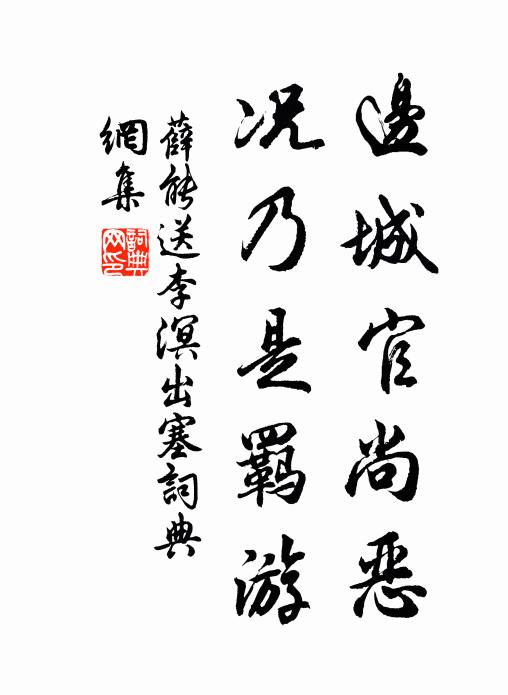 邊城官尚恶
况乃是羁游
薛能送李溟出塞詞典
網集
詞典
网印